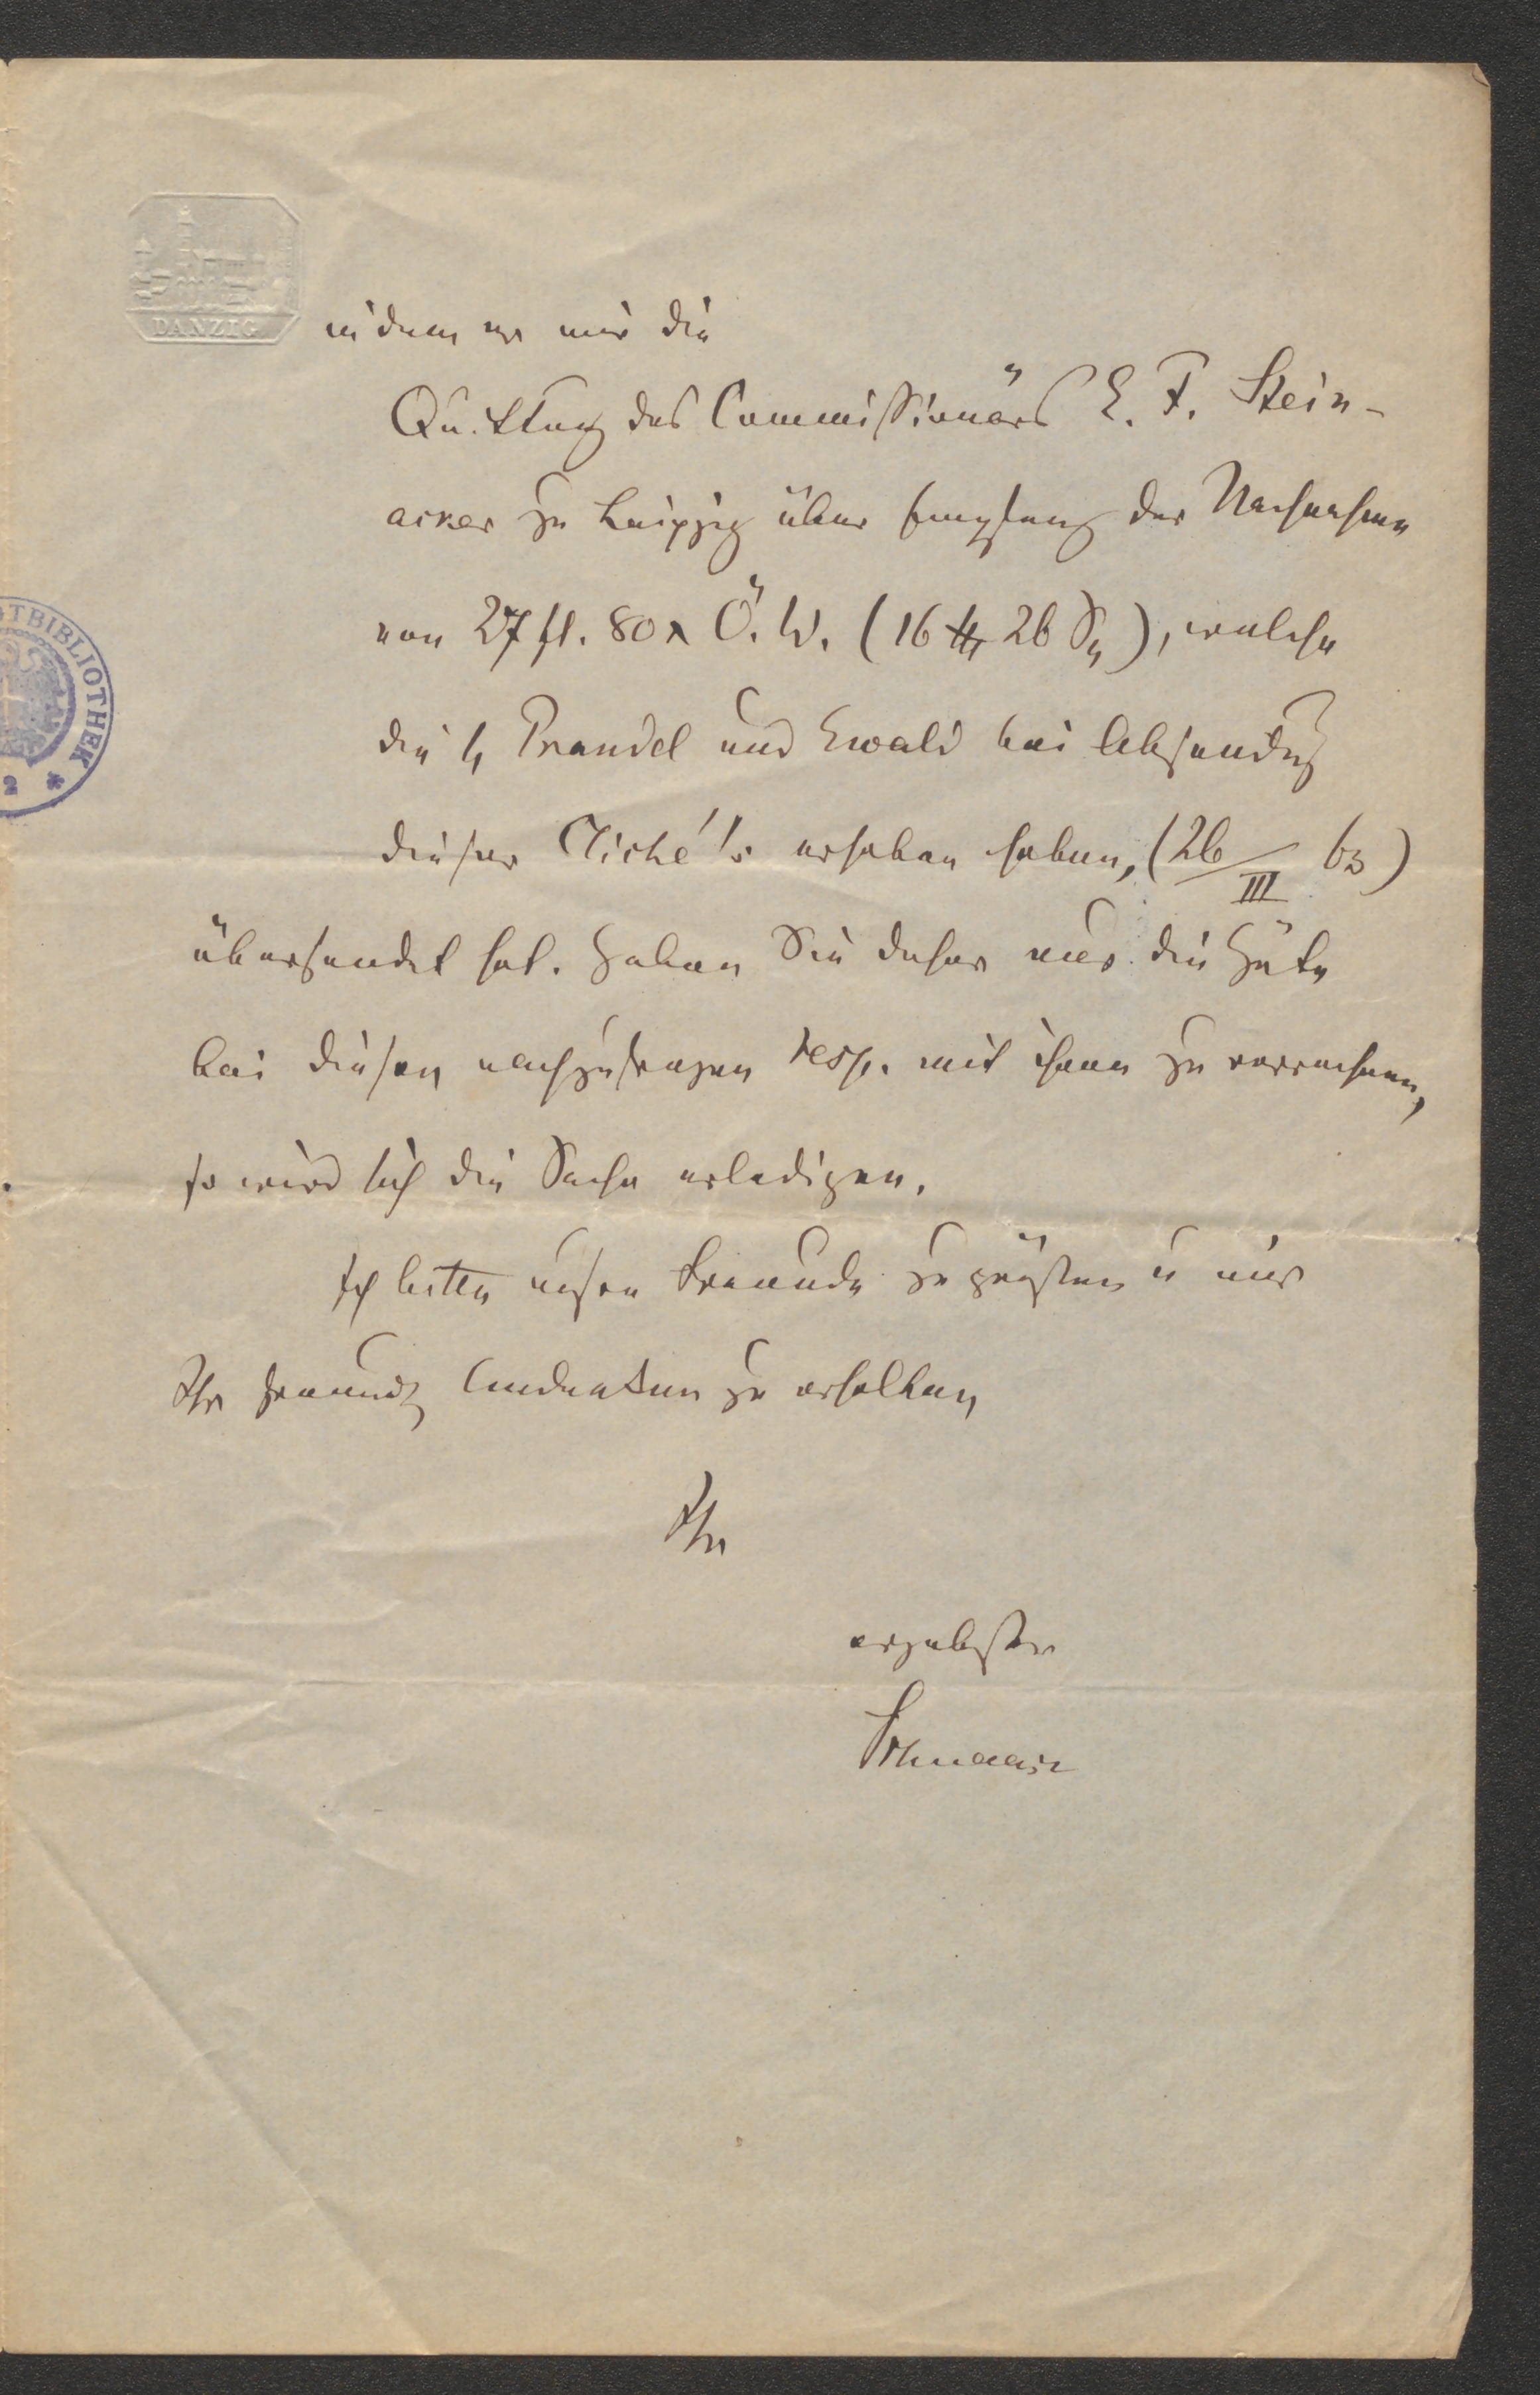 DANZIG
indem er mir die
Quittung des Commissionärs E. F. Stein-
acker zu Leipzig über Empfang der Nachnahme
von 27 fl. 80 x Ö. W. (16 ₰ 26 Sg), welche
die H Prandel und Ewald bei Absendung
dieser Cliché's erhoben haben, (26/III 63)
übersendet hat. Haben Sie daher nur die Güte
bei diesen nachzufragen resp. mit ihnen zu verrechnen,
so wird sich die Sache erledigen.
Ich bitte unsre Freunde zu grüßen u mir
Ihr freundl Andenken zu erhalten
Ihr
ergebenster
Schnaase
OTBIBLIOTHEK